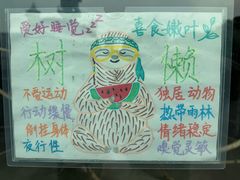 爱好睡觉 zzZ
喜食嫩叶
树
懒
不爱运动
行动缓慢
倒挂身体
夜行性
独居动物
热带雨林
情绪稳定
嗅觉灵敏